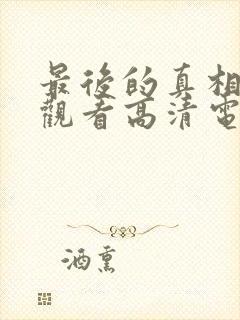 最後的真相
觀看高清電
酒熏